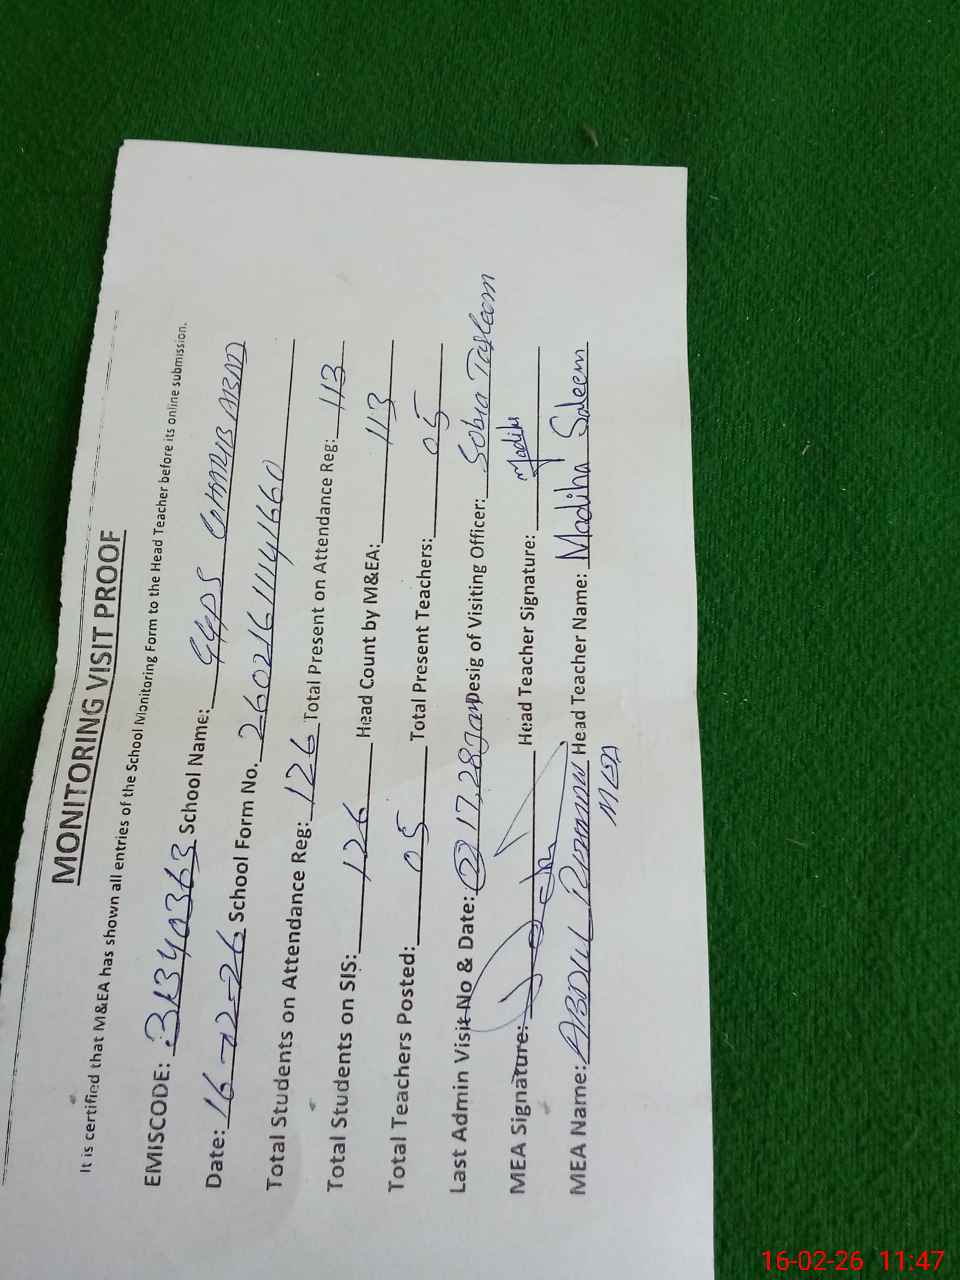 MONITORING VISIT PROOF
It is certified that M&EA has shown all entries of the School Monitoring Form to the Head Teacher before its online submission.
EMISCODE: School Name: GGPS GHARIB ABAD
Date: 16-02-26 School Form No. 260216111441660
Total Students on Attendance Reg: 126 Total Present on Attendance Reg: 113
Total Students on SIS: 126 Head Count by M&EA: 113
Total Teachers Posted: 05 Total Present Teachers: 05
Last Admin Visit No & Date: (2) 17,28 Jan Desig of Visiting Officer: Sobia Tasleem
MEA Signature: Head Teacher Signature: Madiha
MEA Name: ABDUL Head Teacher Name: Madiha Saleem
16-02-26 11:47